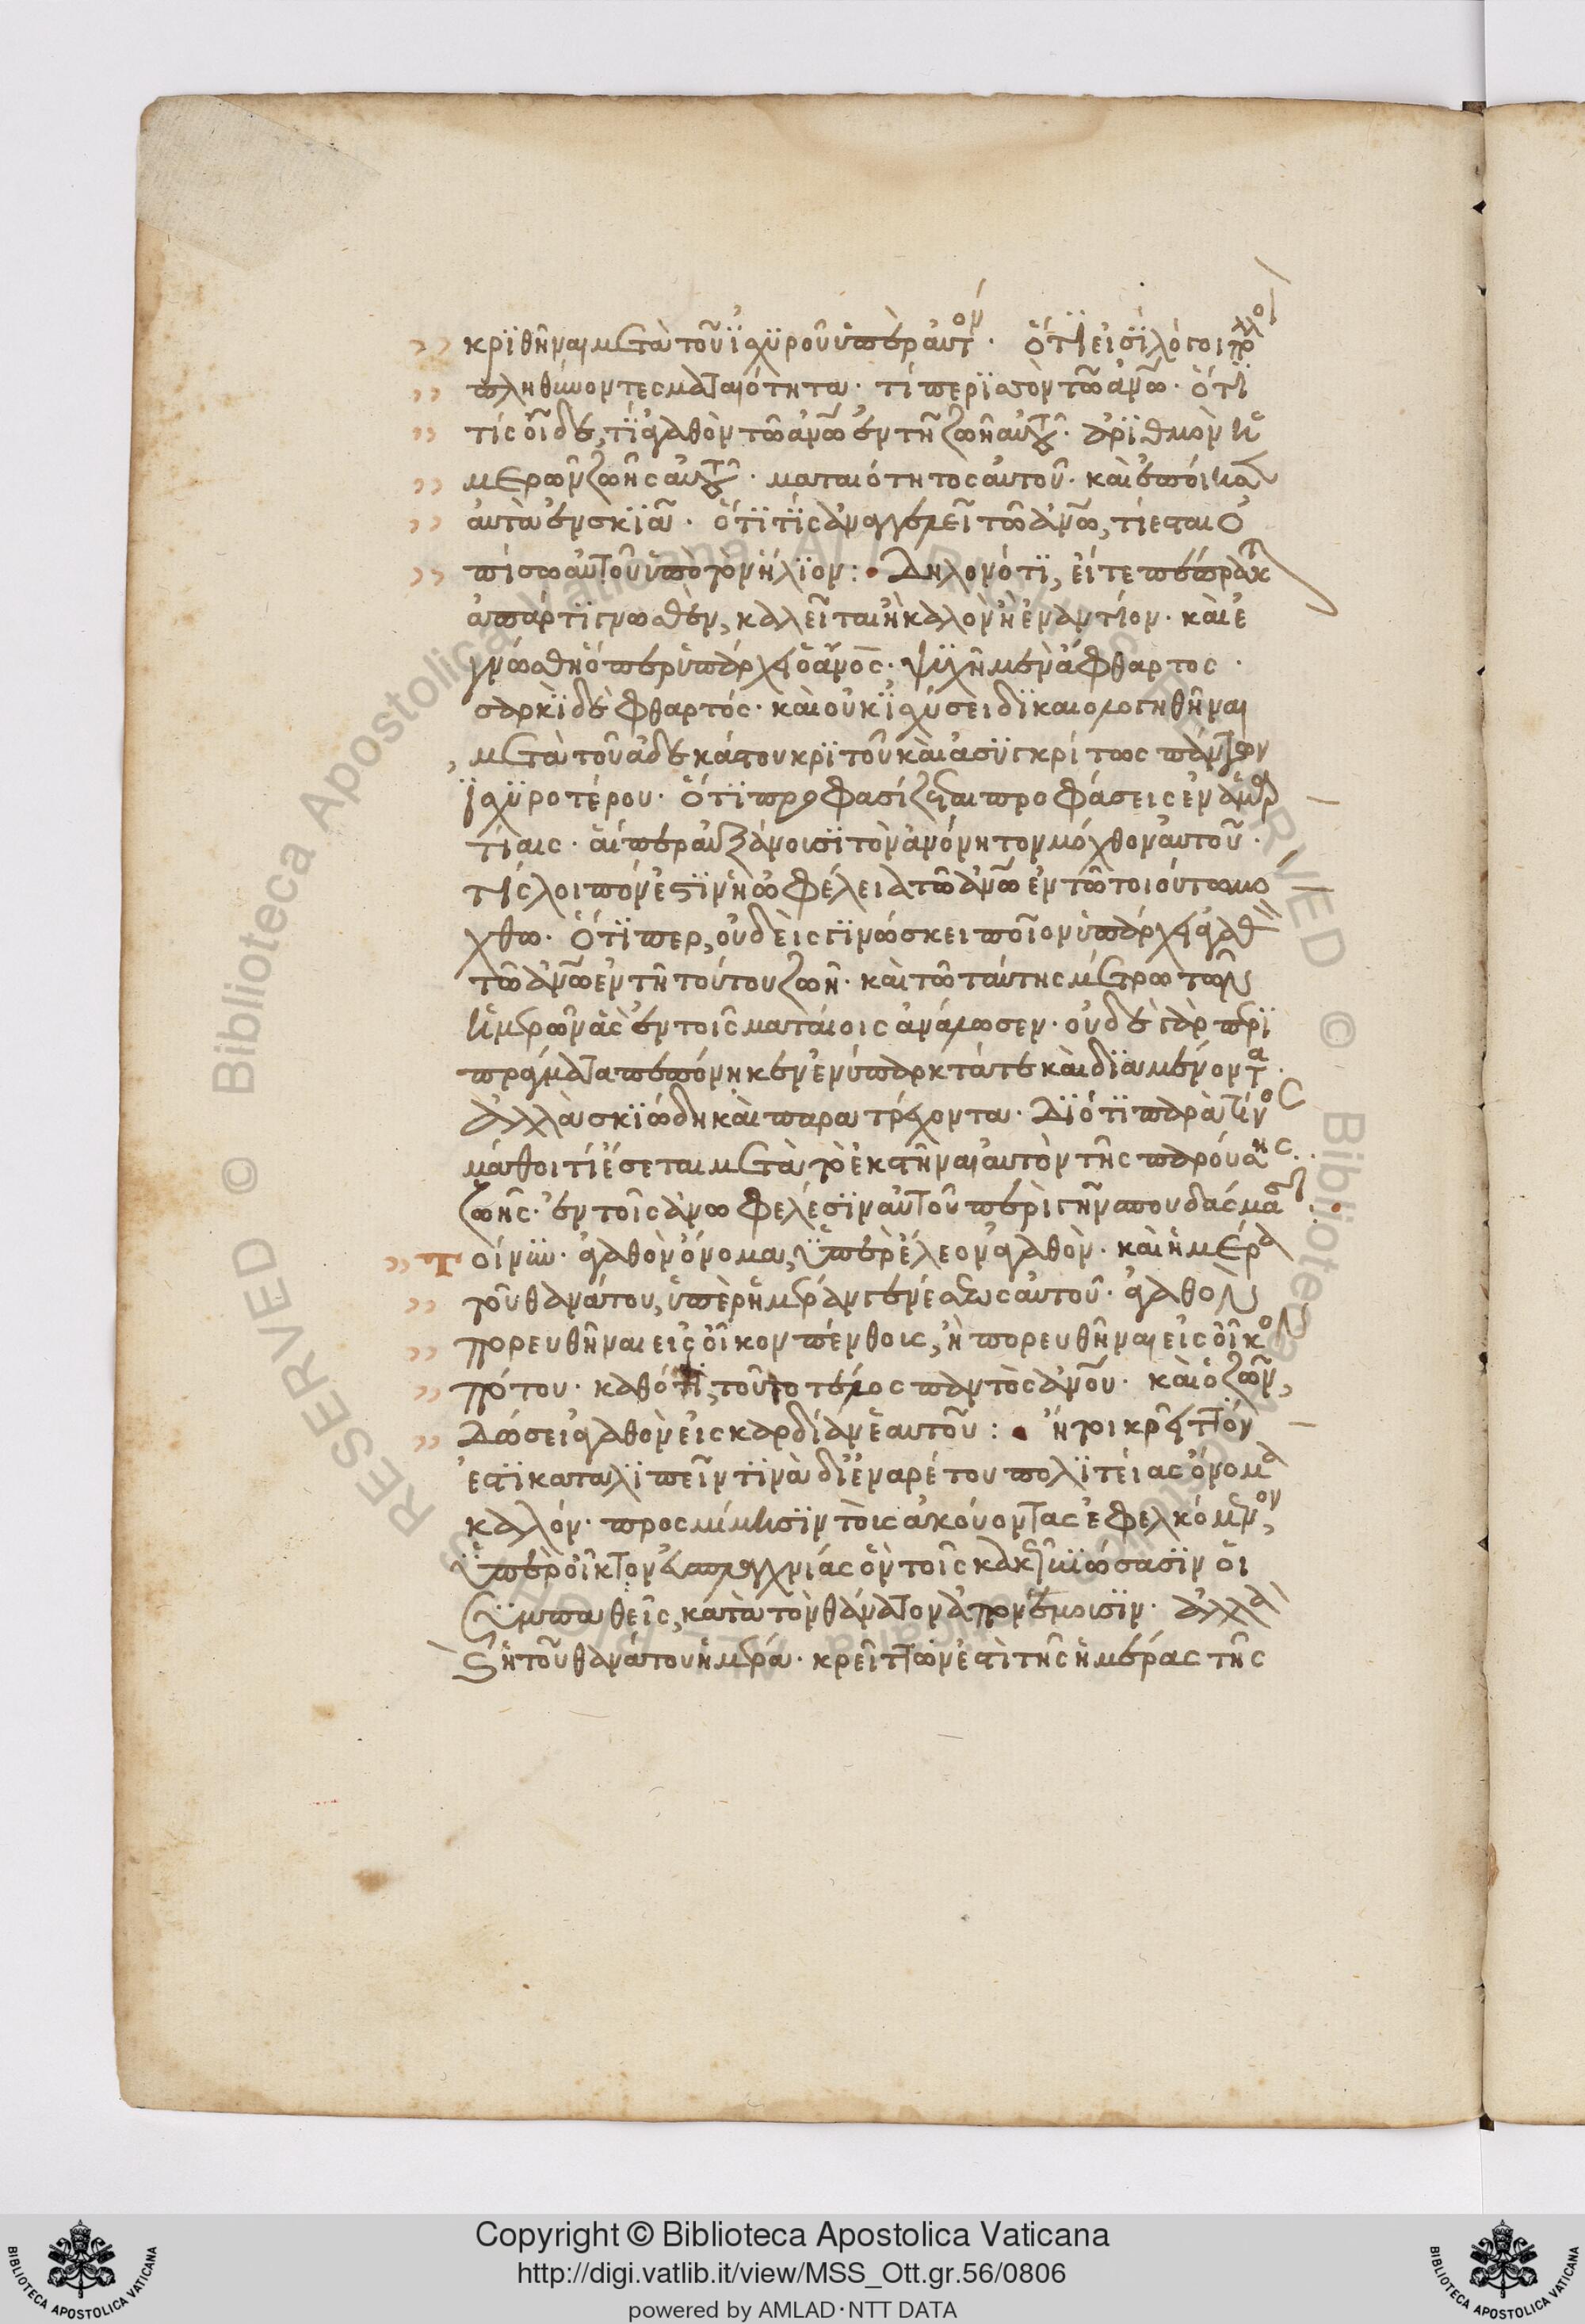 κριθῆναι μετὰ τοῦ ἰσχυροῦ ὑπὲρ αὐτόν. ὅτι εἰσὶ λόγοι πολλοὶ
πληθύνοντες ματαιότητα. τί περισσὸν τῶ ἀνω. ὅτι
τίς οἶδε, τί ἀγαθὸν τῶ ἀνω ἐν τῆ ζωῆ αὐτοῦ. ἀριθμὸν ἡ
μερῶν ζωῆς αὐτοῦ. ματαιότητος αὐτοῦ. καὶ ἐποίησεν
αὐτὰ ἐν σκιᾶ. ὅτι τίς ἀναγγελεῖ τῶ ἀνω, τί ἔσται ὀ
πίσω αὐτοῦ ὑπὸ τὸν ἥλιον: Δηλονότι, εἴτε πέπρακται
ἀπάρτι γνωσθὲν, καλεῖται ἢ καλὸν ἢ ἐναντίον. καὶ ἐ
γνώσθη ὅπερ ὑπάρχει ὁ ἄνος. ψυχῆ μὲν ἄφθαρτος.
σαρκὶ δὲ φθαρτός. καὶ οὐκ ἰσχύσει δικαιολογηθῆναι
μετὰ τοῦ ἀδεκάστου κριτοῦ καὶ ἀσυγκρίτως πάντων
ἰσχυροτέρου. ὅτι προφασίζεται προφάσεις ἐν ἁμαρ
τίαις. αἵπερ αὐξάνουσι τὸν ἀνόνητον μόχθον αὐτοῦ.
τίς λοιπόν ἐστιν ἡ ὠφέλεια τῶ ἀνω ἐν τῶ τοιούτω μό
χθω. ὅτιπερ, οὐδεὶς γινώσκει ποῖον ὑπάρχει ἀγαθὸν
τῶ ἀνω ἐν τῆ τούτου ζωῆ. καὶ τῶ ταύτης μέτρω τῶν
ἡμερῶν ἃς ἐν τοῖς ματαίοις ἀνάλωσεν. οὐδὲ γὰρ περὶ
πράγματα πεπόνηκεν ἐνύπαρκτά τε καὶ διαμένοντα.
ἀλλὰ σκιώδη καὶ παρατρέχοντα. Διότι παρὰ τίνος
μάθοι τί ἔσεται μετὰ τὸ ἐκστῆναι αὐτὸν τῆς παρούσης
ζωῆς. ἐν τοῖς ἀνωφελέσιν αὐτοῦ περὶ γῆν σπουδάσμασι.
Τοίνυν. ἀγαθὸν ὄνομα, ὑπὲρ ἔλεον ἀγαθὸν. καὶ ἡμέρα
τοῦ θανάτου, ὑπὲρ ἡμέραν γενέσεως αὐτοῦ. ἀγαθὸν
πορευθῆναι εἰς οἶκον πένθους, ἢ πορευθῆναι εἰς οἶκον
πότου. καθότι, τοῦτο τέλος παντὸς ἀνου. καὶ ὁ ζῶν,
Δώσει ἀγαθὸν εἰς καρδίαν ἑαυτοῦ: ἤτοι κρεῖττόν
ἐστι καταλιπεῖν τινὰ δι' ἐναρέτου πολιτείας ὄνομα
καλόν. προς μίμησιν τοὺς ἀκούοντας ἐφελκόμενον,
ὑπὲρ οἶκτον εὐσπλαγχνίας ὃν τοῖς κακῶς βιώσασιν οἱ
συμπαθεῖς, κατὰ τὸν θάνατον ἀπονέμουσιν. ἀλλὰ
καὶ ἡ τοῦ θανάτου ἡμέρα. κρείττων ἐστὶ τῆς ἡμέρας τῆς
Copyright © Biblioteca Apostolica Vaticana
http://digi.vatlib.it/view/MSS_Ott.gr.56/0806
powered by AMLAD·NTT DATA